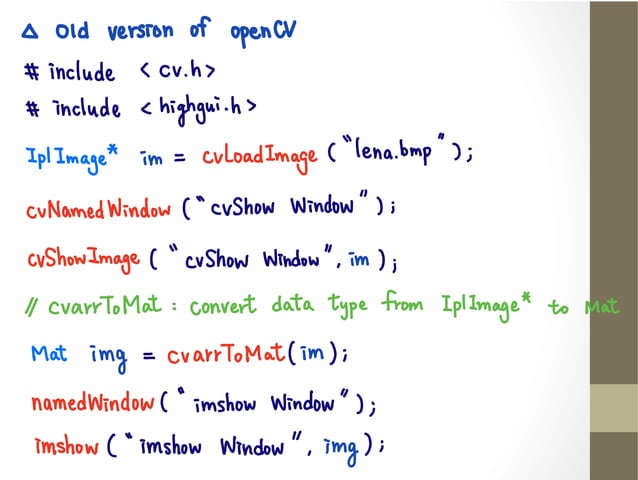 △ Old version of openCV
# include < cv.h>
# include < highgui.h>
IplImage* im = cvLoadImage ("lena.bmp");
cvNamedWindow ("cvShow Window");
cvShowImage ("cvShow Window", im );
// cvarrToMat : convert data type from IplImage* to Mat
Mat img = cvarrToMat(im);
namedWindow ("imshow Window");
imshow ("imshow Window", img);